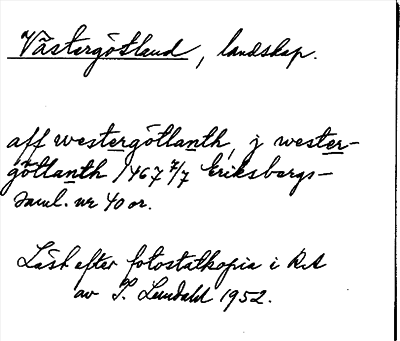 Västergötland, landskap.
aff westergötlanth, j wester-
götlanth 1467 7/7 Eriksbergs-
saml. nr 40 or.
Läst efter fotostatkopia i RA
av P. Lundahl 1952.